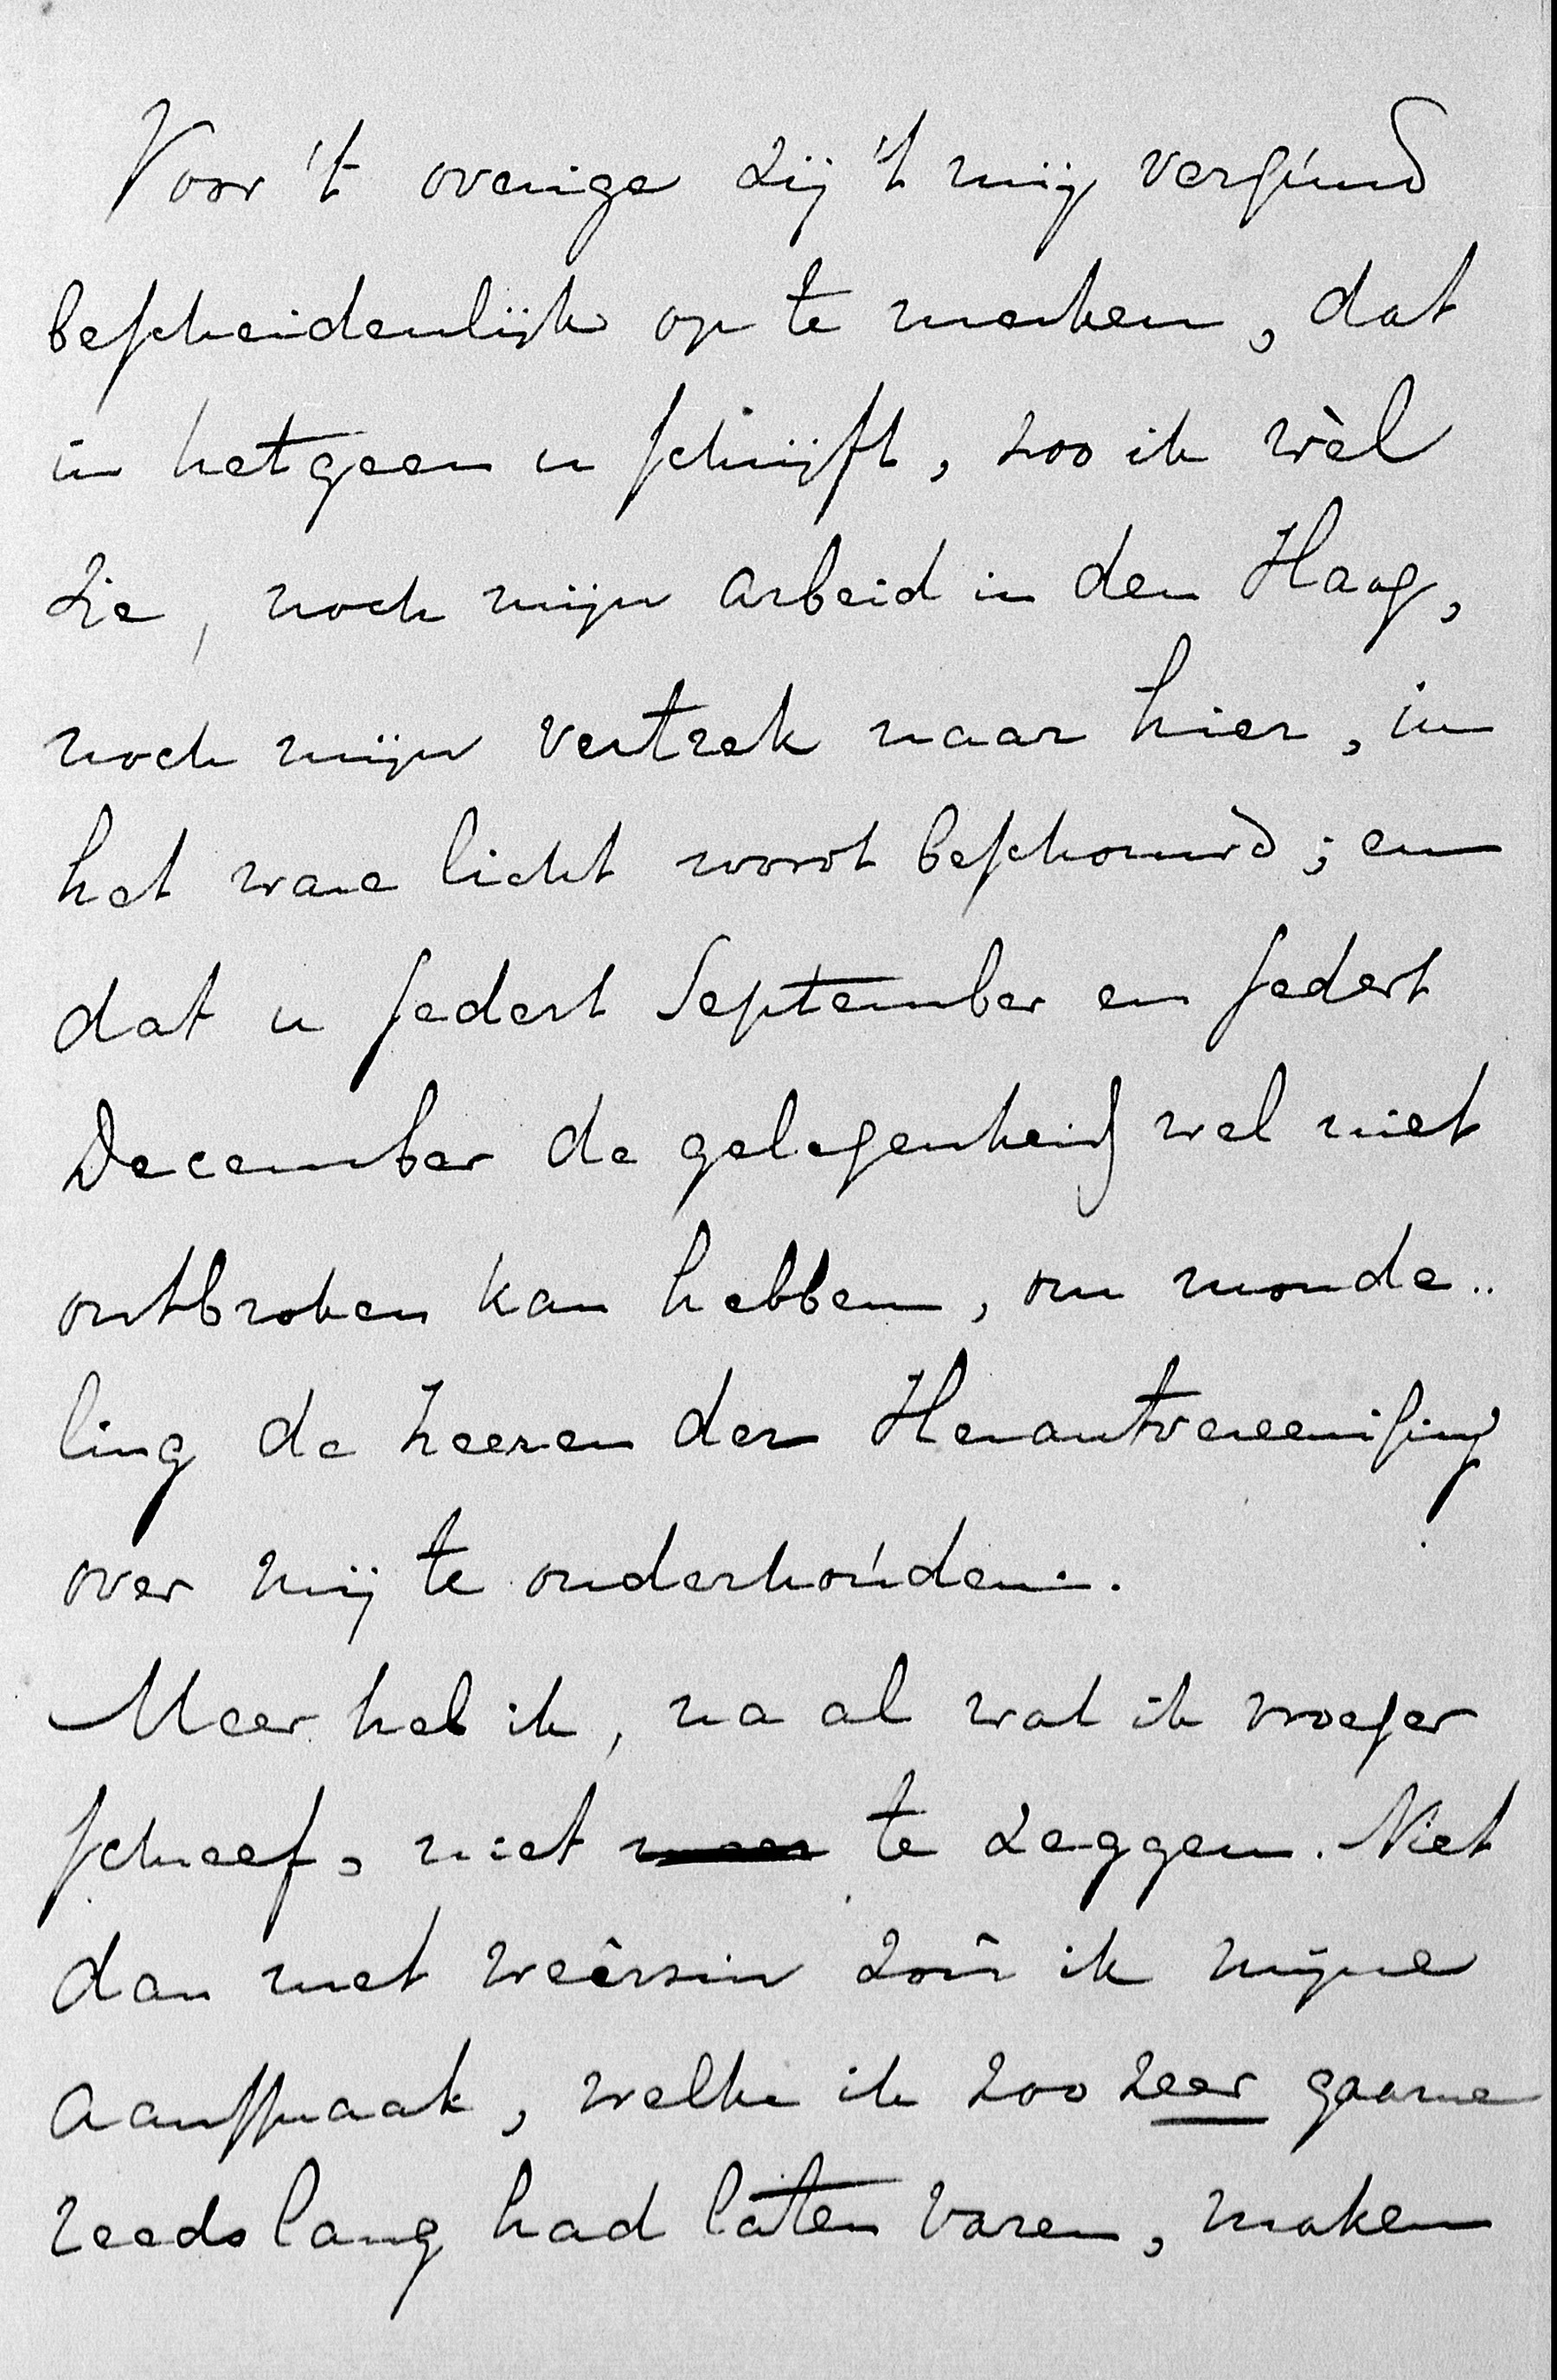 Voor 't overige zij 't mij vergúnd
bescheidenlijk op te merken, dat
in hetgeen u schrijft, zoo ik wèl
zie, noch mijn arbeid in den Haag,
noch mijn vertrek naar hier, in
het ware licht wordt beschouwd; en
dat u sedert September en sedert
December de gelegenheid wel niet
ontbroken kan hebben, om monde..
ling de heeren der Herautvereeniging
over mij te onderhoúden.
Meer heb ik, na al wat ik vroeger
schreef, niet ~~meer~~ te zeggen. Niet
dan met weêrzin zoû ik mijne
aanspraak, welke ik zoo zeer gaarne
reeds lang had laten varen, maken